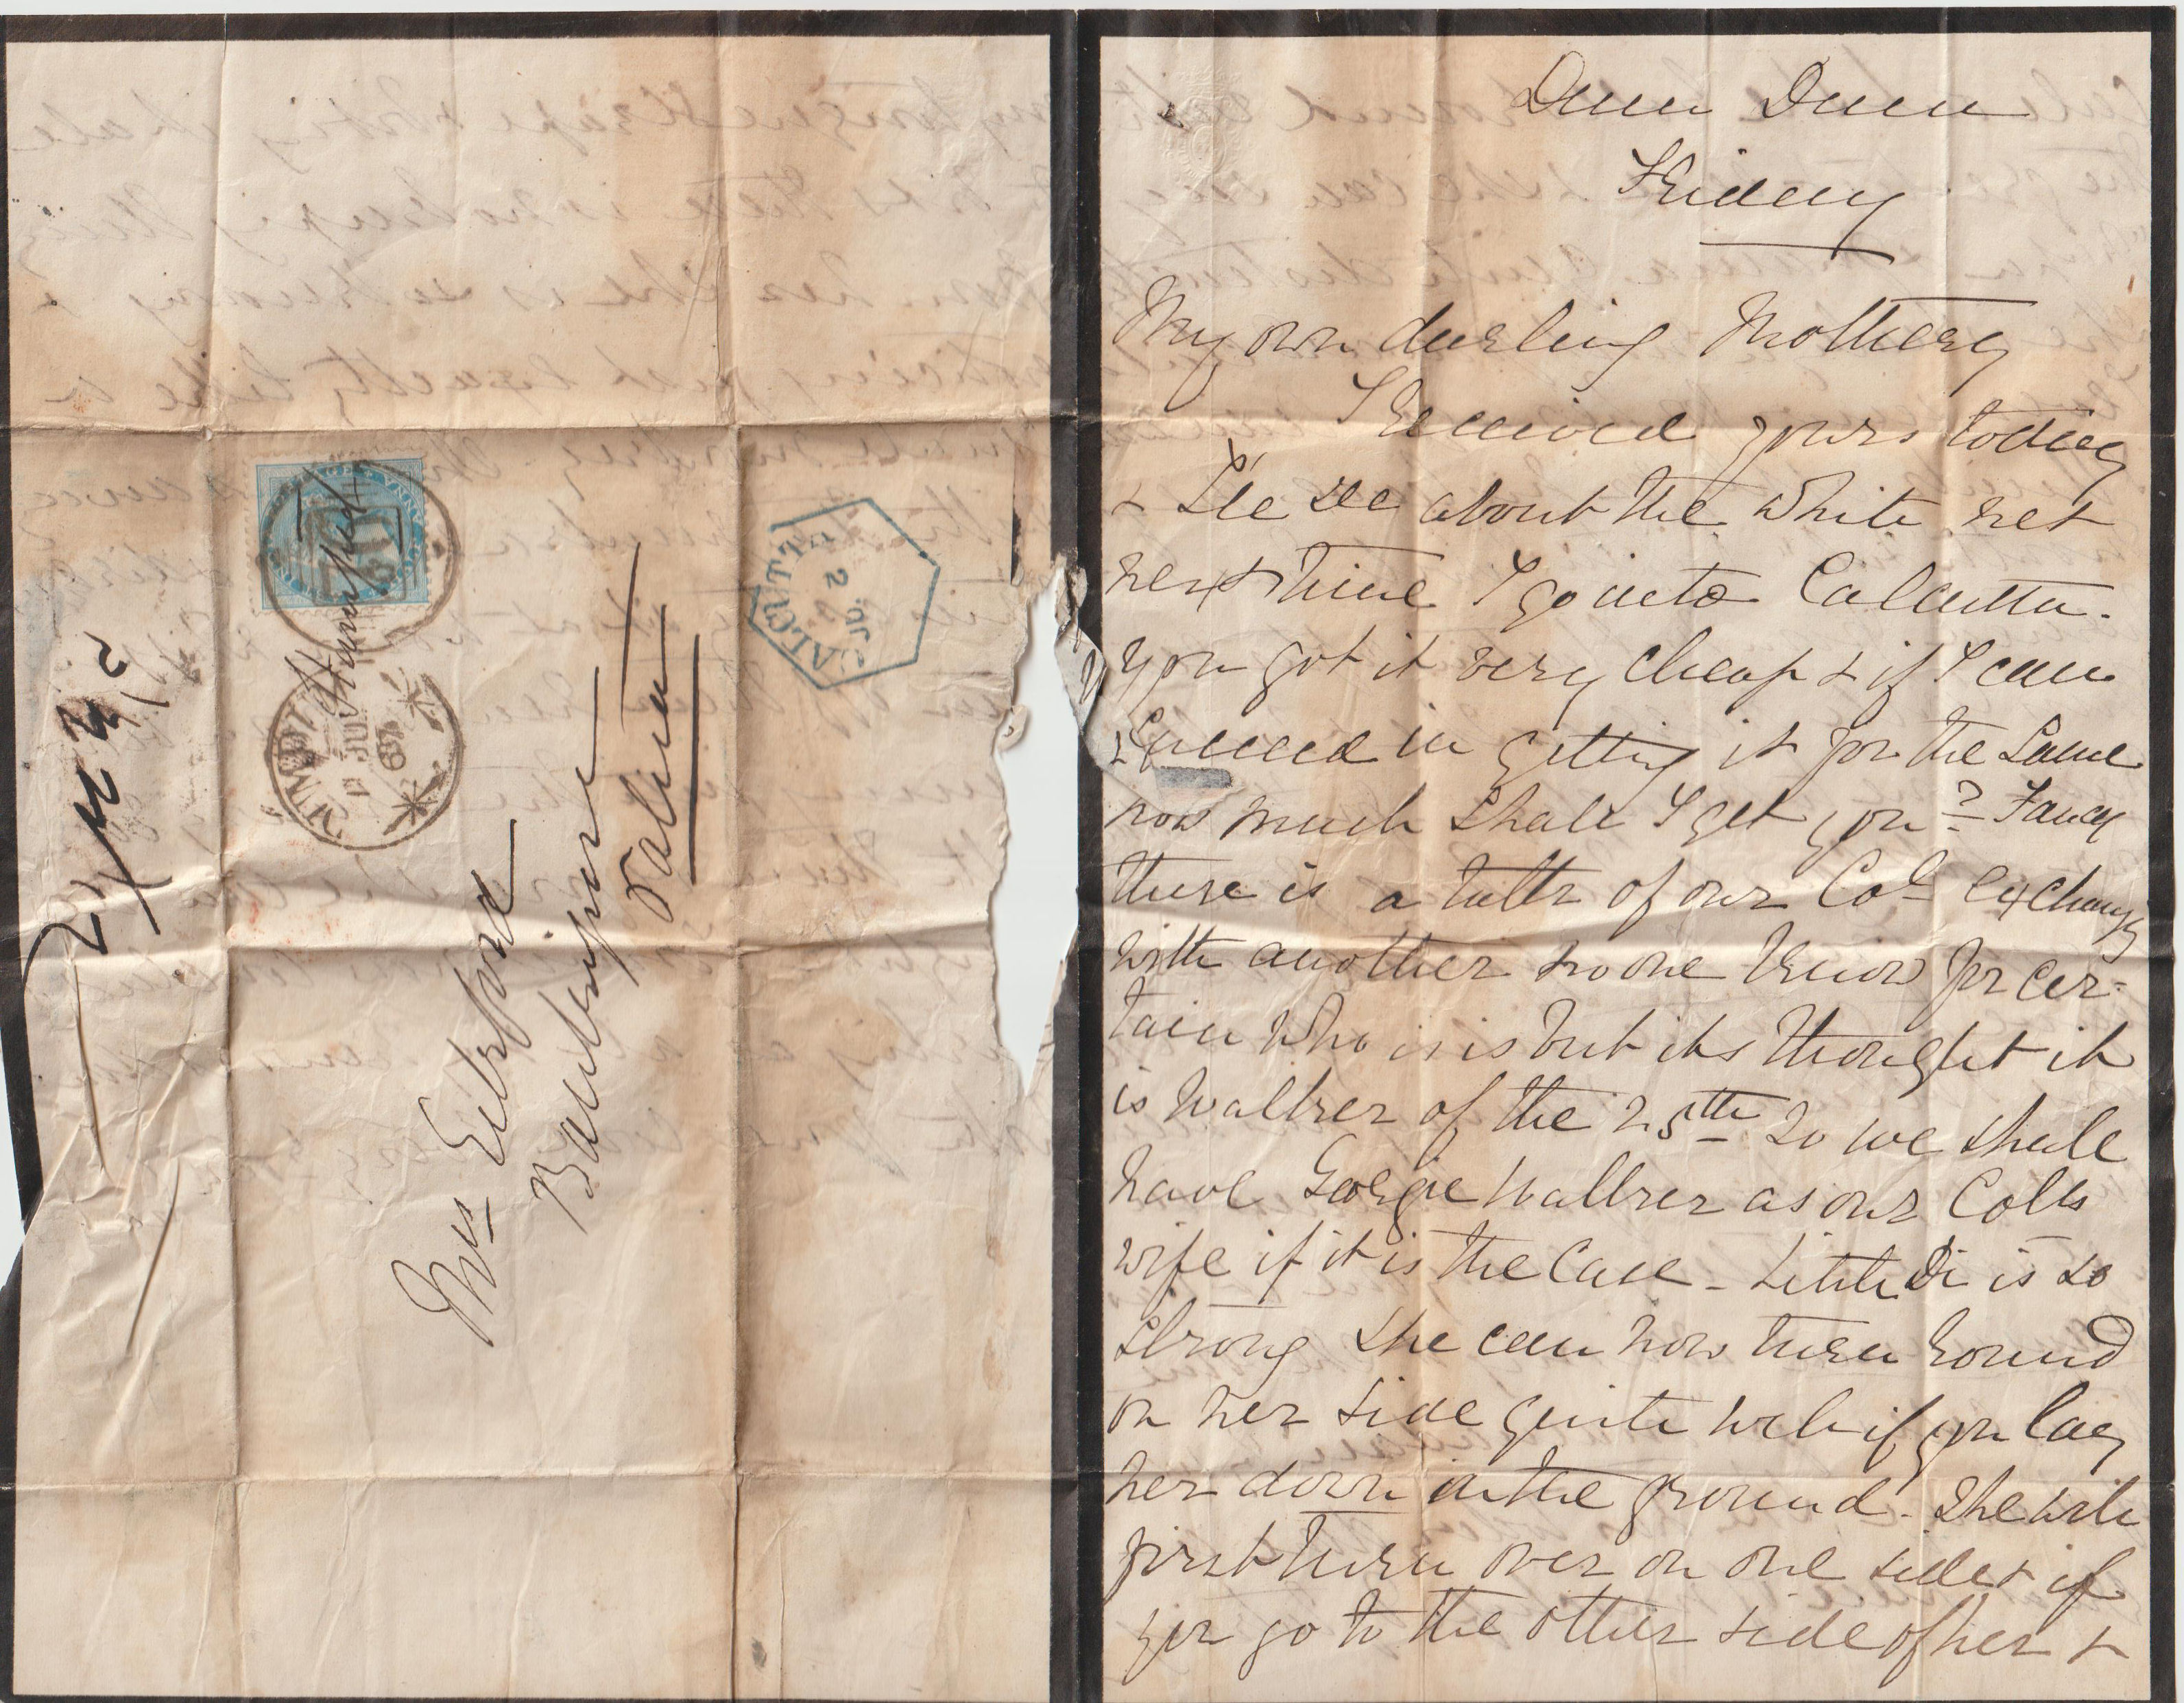 Mrs Eelsford
Stamped
CALCUTTA
2
JU
JU
67
24
Dum Dum
Friday
My own darling Mothery
I received yours today
& I'll see about the white net
next time I go into Calcutta.
you got it very cheap & if I can
succeed in getting it for the same
how much shall I get you? Fancy
there is a talk of our Col. exchang
with another no one knows for cer-
tain who is is but its thought it
is Walker of the 25th so we shall
have Georgie Walker as our Cols
wife if it is the case - little Di is so
strong she can now turn round
on her side quite well if you lay
her down on the ground. She will
first turn over on one side & if
you go to the other side of her &